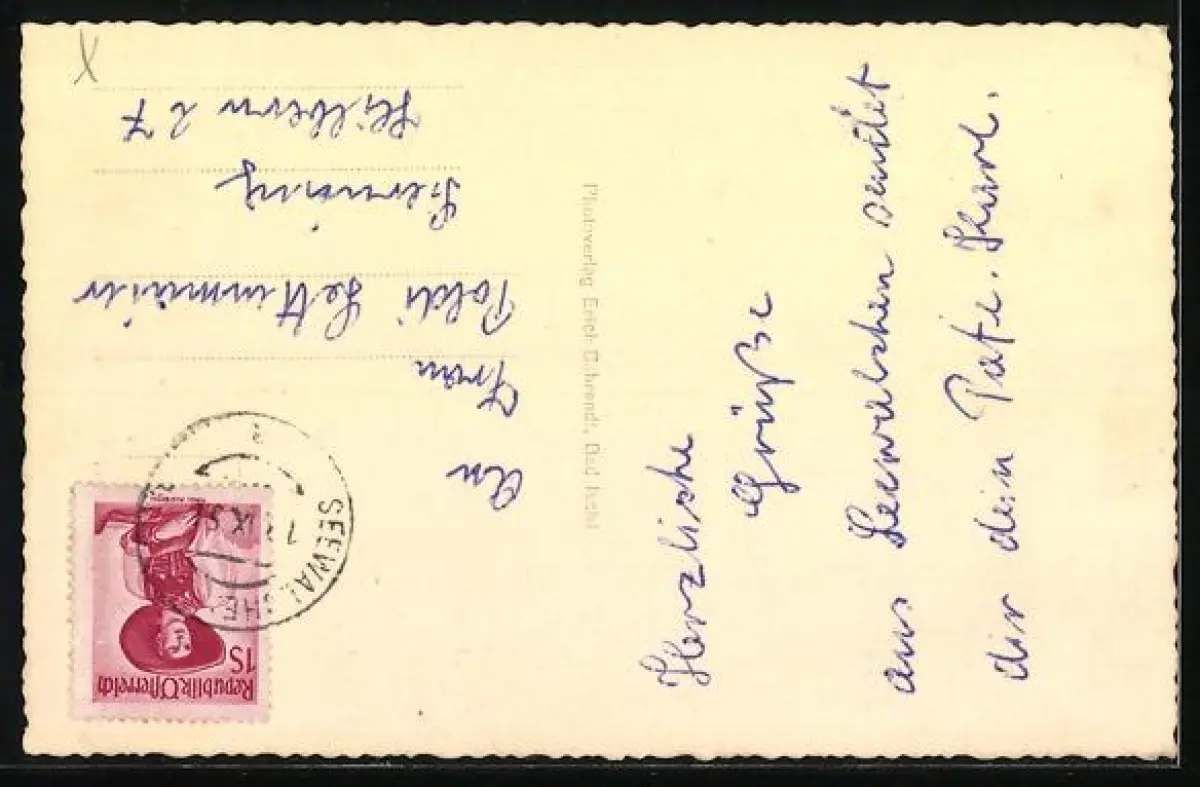 Herzliche
Grüße
aus Seewalchen sendet
dir dein Pate. Karl.
Photoverlag Erich Bährendt, Bad Ischl
Republik Österreich
1S
SEEWALCHEN
IX
An
Frau
Poldi
Sierning
27
X